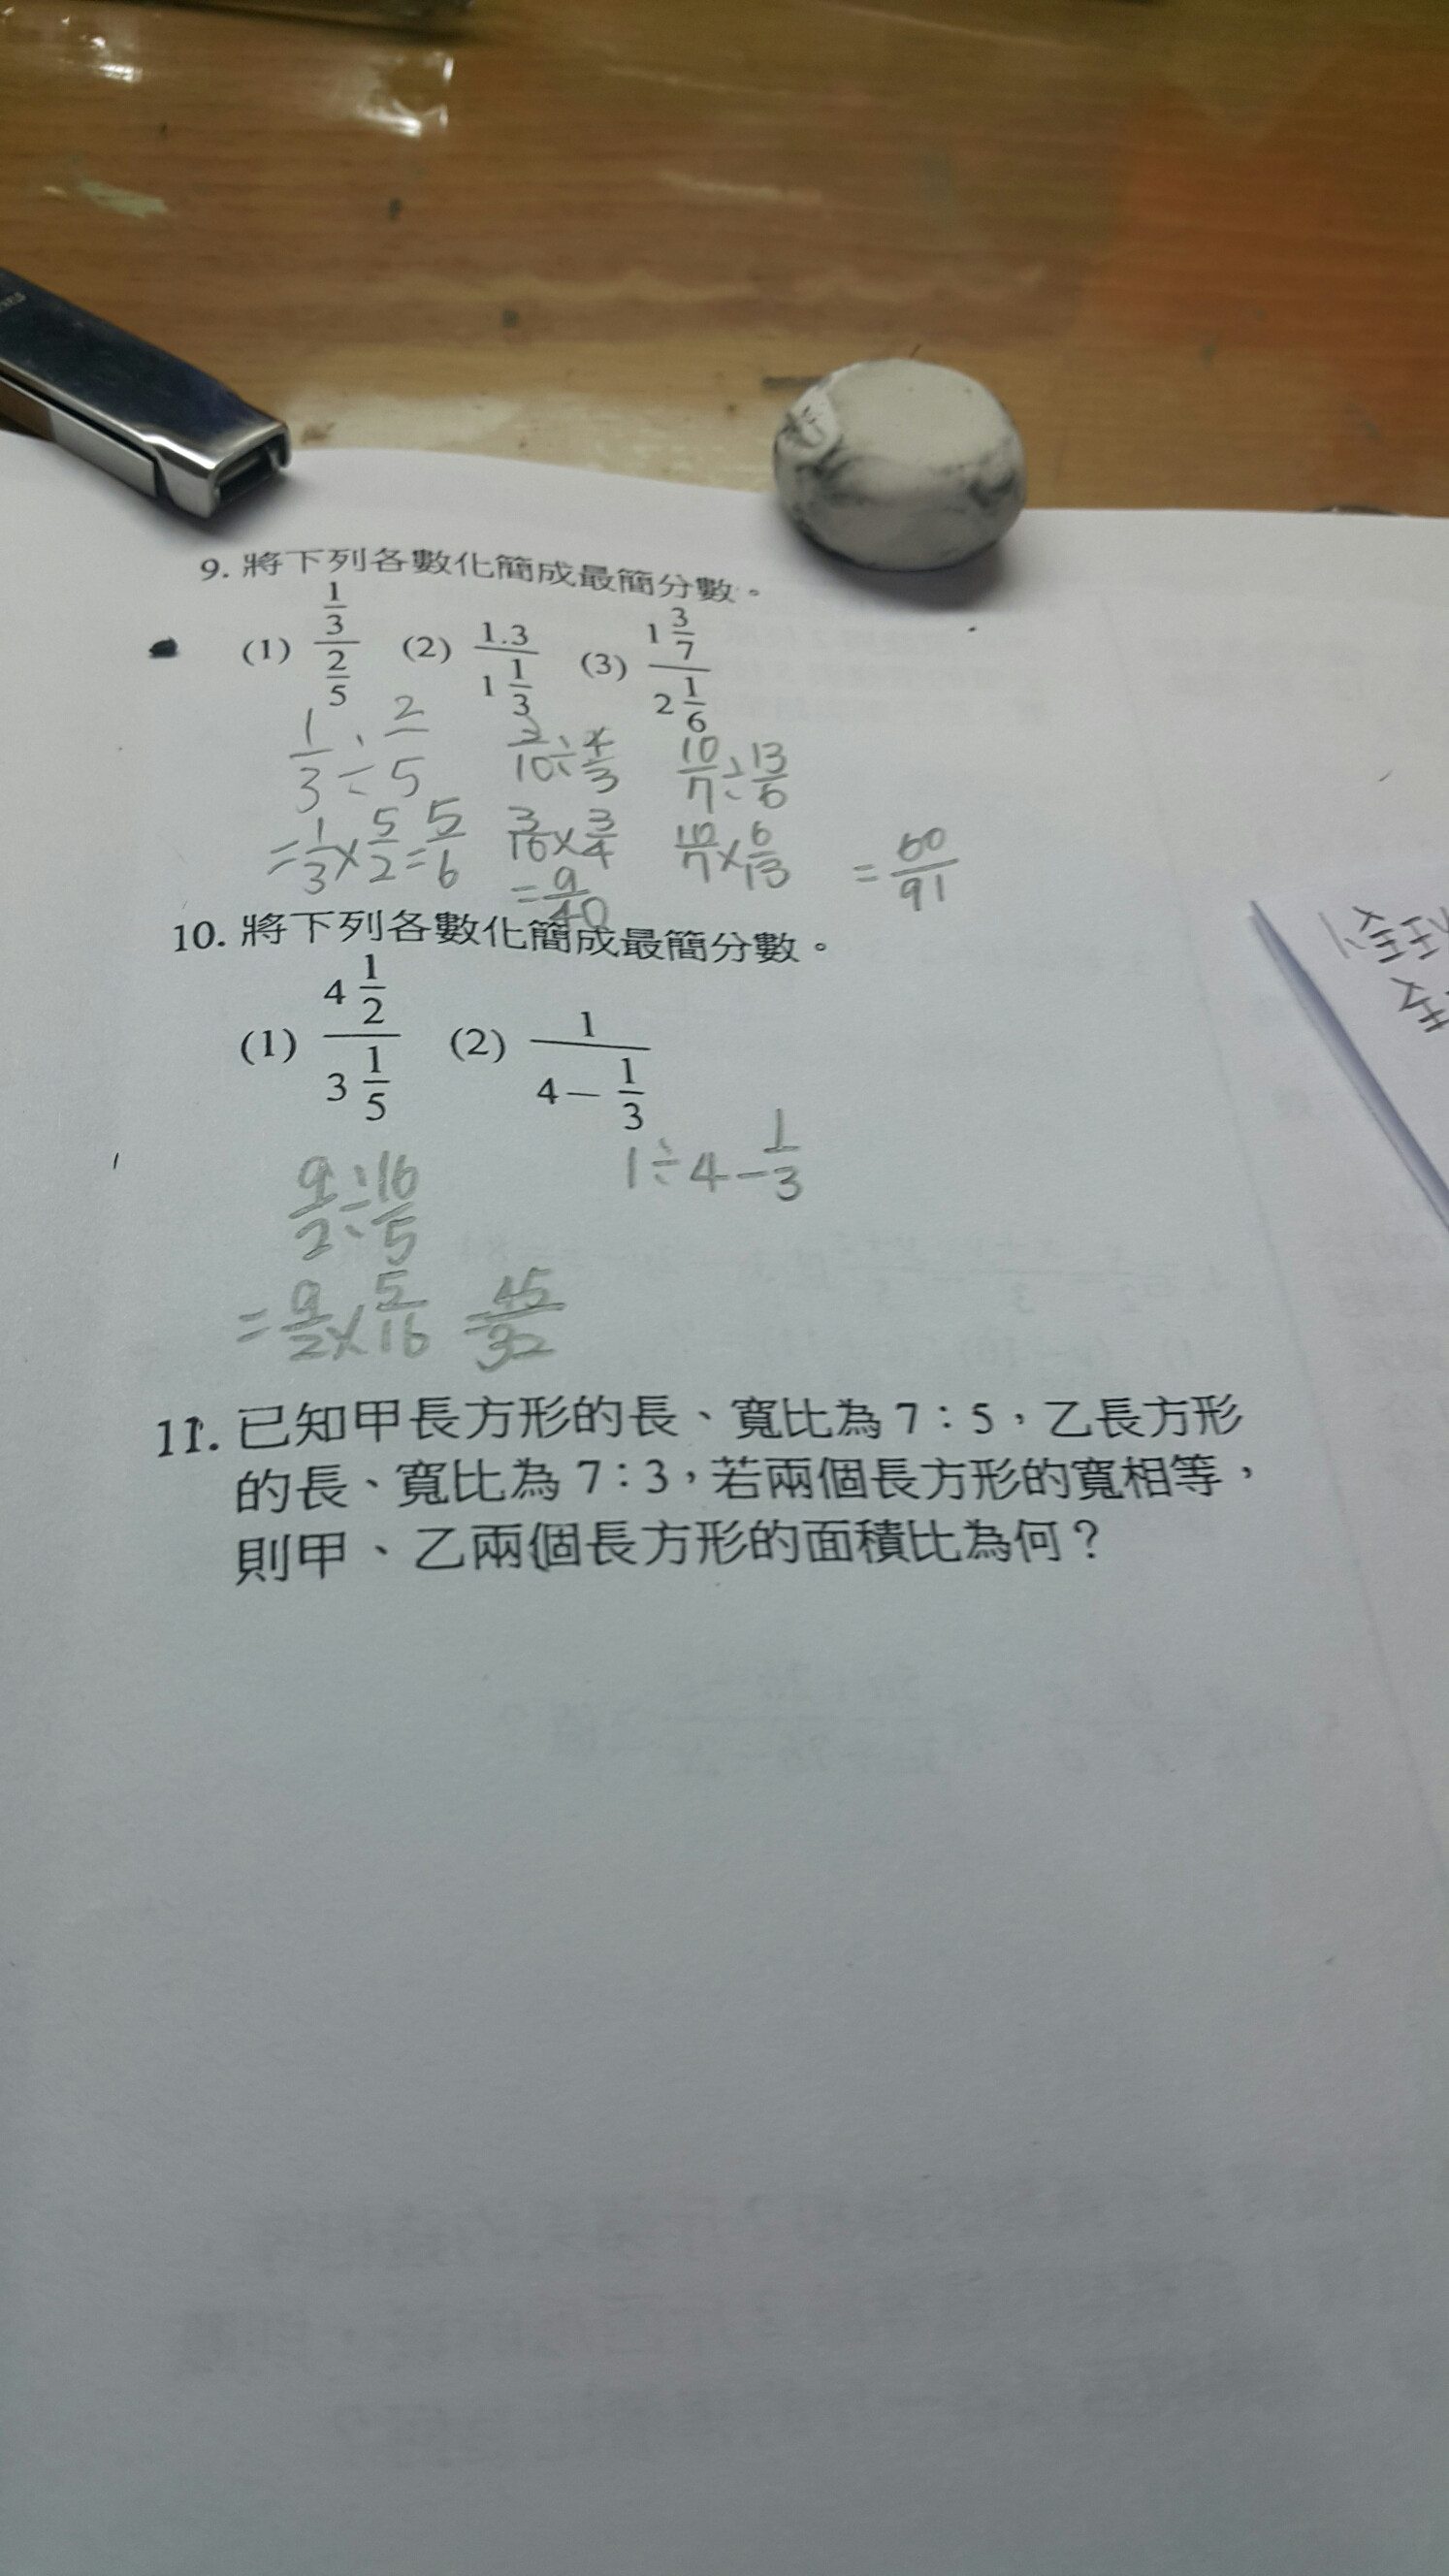 9. 將下列各數化簡成最簡分數。
(1) 1/3 / 2/5 (2) 1.3 / 1 1/3 (3) 1 3/7 / 2 1/6
1/3 ÷ 2/5
3/10 ÷ 4/3
10/7 ÷ 13/6
= 1/3 × 5/2 = 5/6
3/10 × 3/4
10/7 × 6/13 = 60/91
= 9/40
10. 將下列各數化簡成最簡分數。
(1) 4 1/2 / 3 1/5 (2) 1 / 4 − 1/3
9/2 ÷ 16/5
1 ÷ 4 − 1/3
= 9/2 × 5/16 = 45/32
11. 已知甲長方形的長、寬比為 7：5，乙長方形
的長、寬比為 7：3，若兩個長方形的寬相等，
則甲、乙兩個長方形的面積比為何？